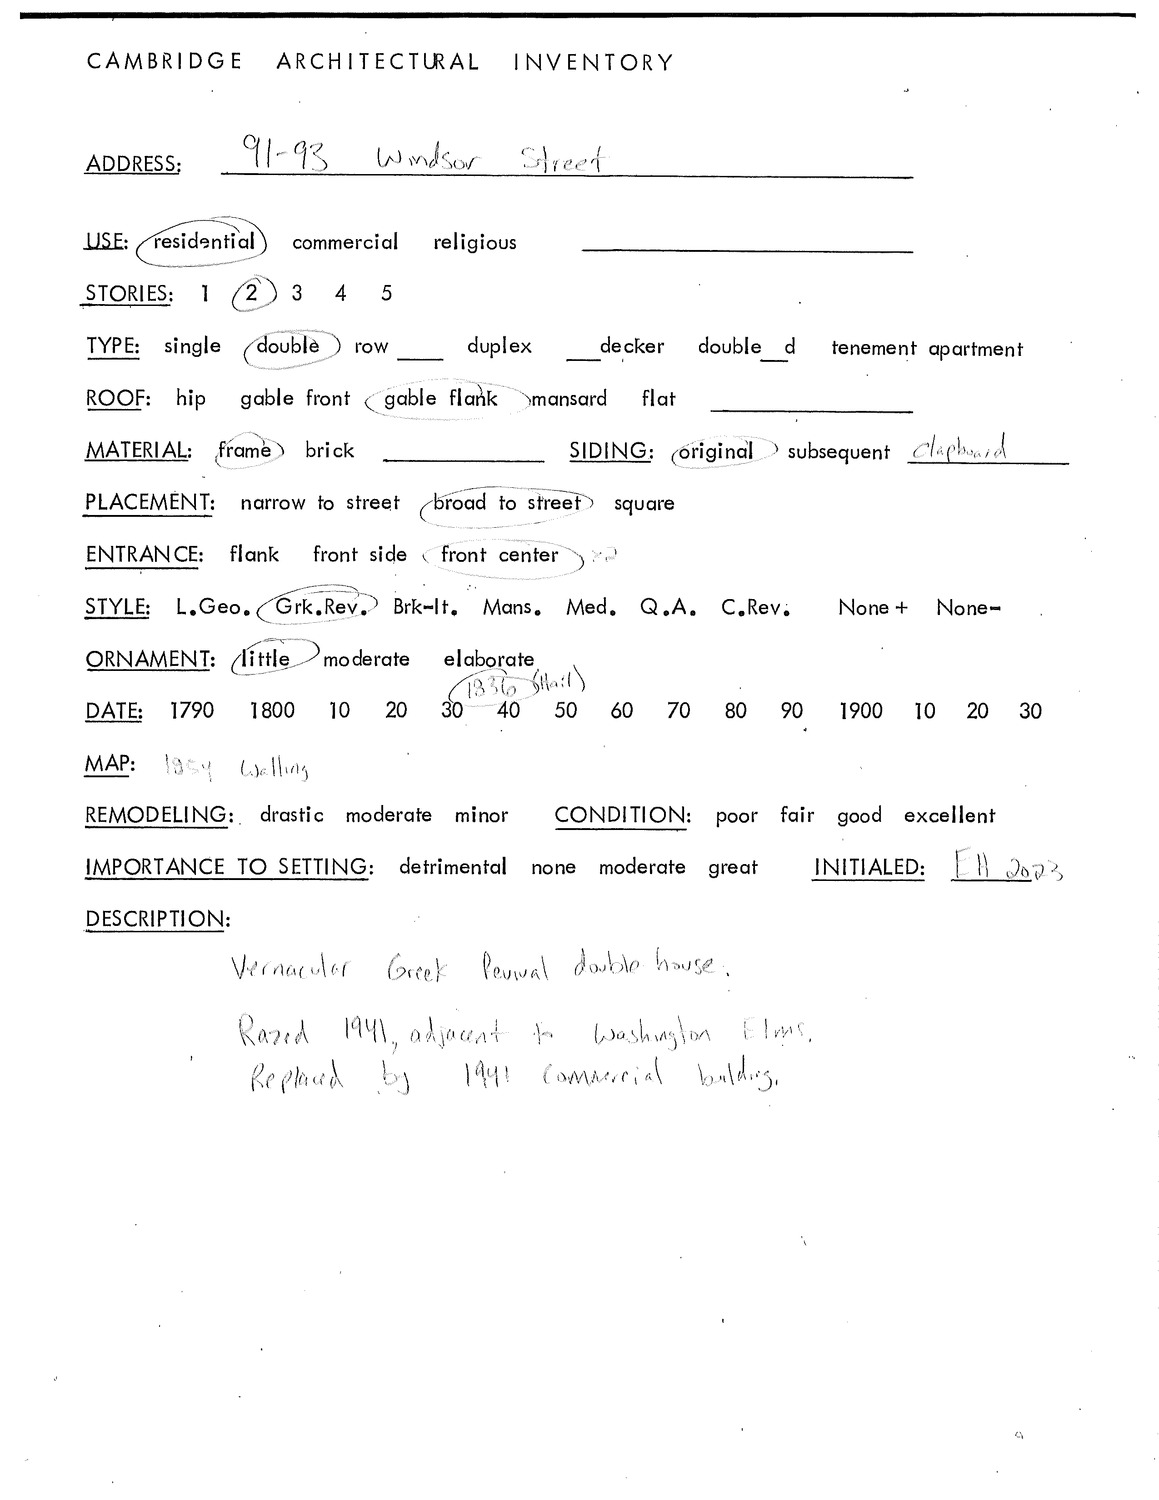 CAMBRIDGE ARCHITECTURAL INVENTORY
ADDRESS: 91-93 Windsor Street
USE: residential commercial religious
STORIES: 1 2 3 4 5
TYPE: single double row ___ duplex ___decker double__d tenement apartment
ROOF: hip gable front gable flank mansard flat
MATERIAL: frame brick SIDING: original subsequent Clapboard
PLACEMENT: narrow to street broad to street square
ENTRANCE: flank front side front center x2
STYLE: L.Geo. Grk.Rev. Brk-It. Mans. Med. Q.A. C.Rev. None+ None-
ORNAMENT: little moderate elaborate
1836 (Hail)
DATE: 1790 1800 10 20 30 40 50 60 70 80 90 1900 10 20 30
MAP: 1854 Walling
REMODELING: drastic moderate minor CONDITION: poor fair good excellent
IMPORTANCE TO SETTING: detrimental none moderate great INITIALED: EH 2023
DESCRIPTION:
Vernacular Greek Revival double house.
Razed 1941, adjacent to Washington Elms.
Replaced by 1941 commercial building.